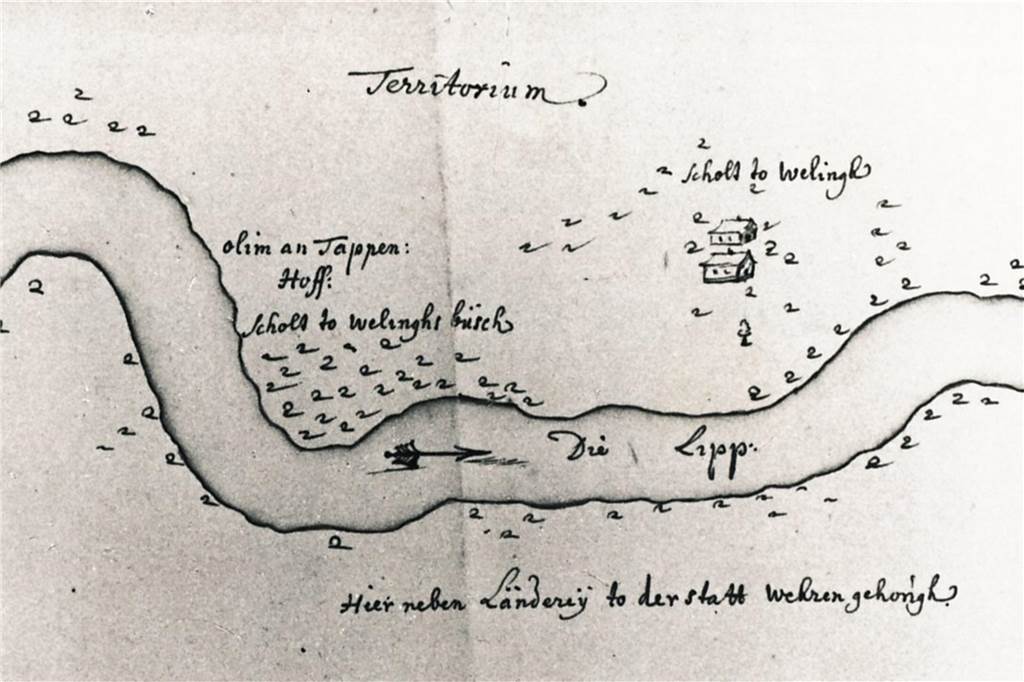 Territorium
Scholt to Welingh
olim an Tappen:
Hoff:
Scholt to Welinghs büsch
Die Lipp:
Hier neben Länderey to der statt Wehren gehorigh